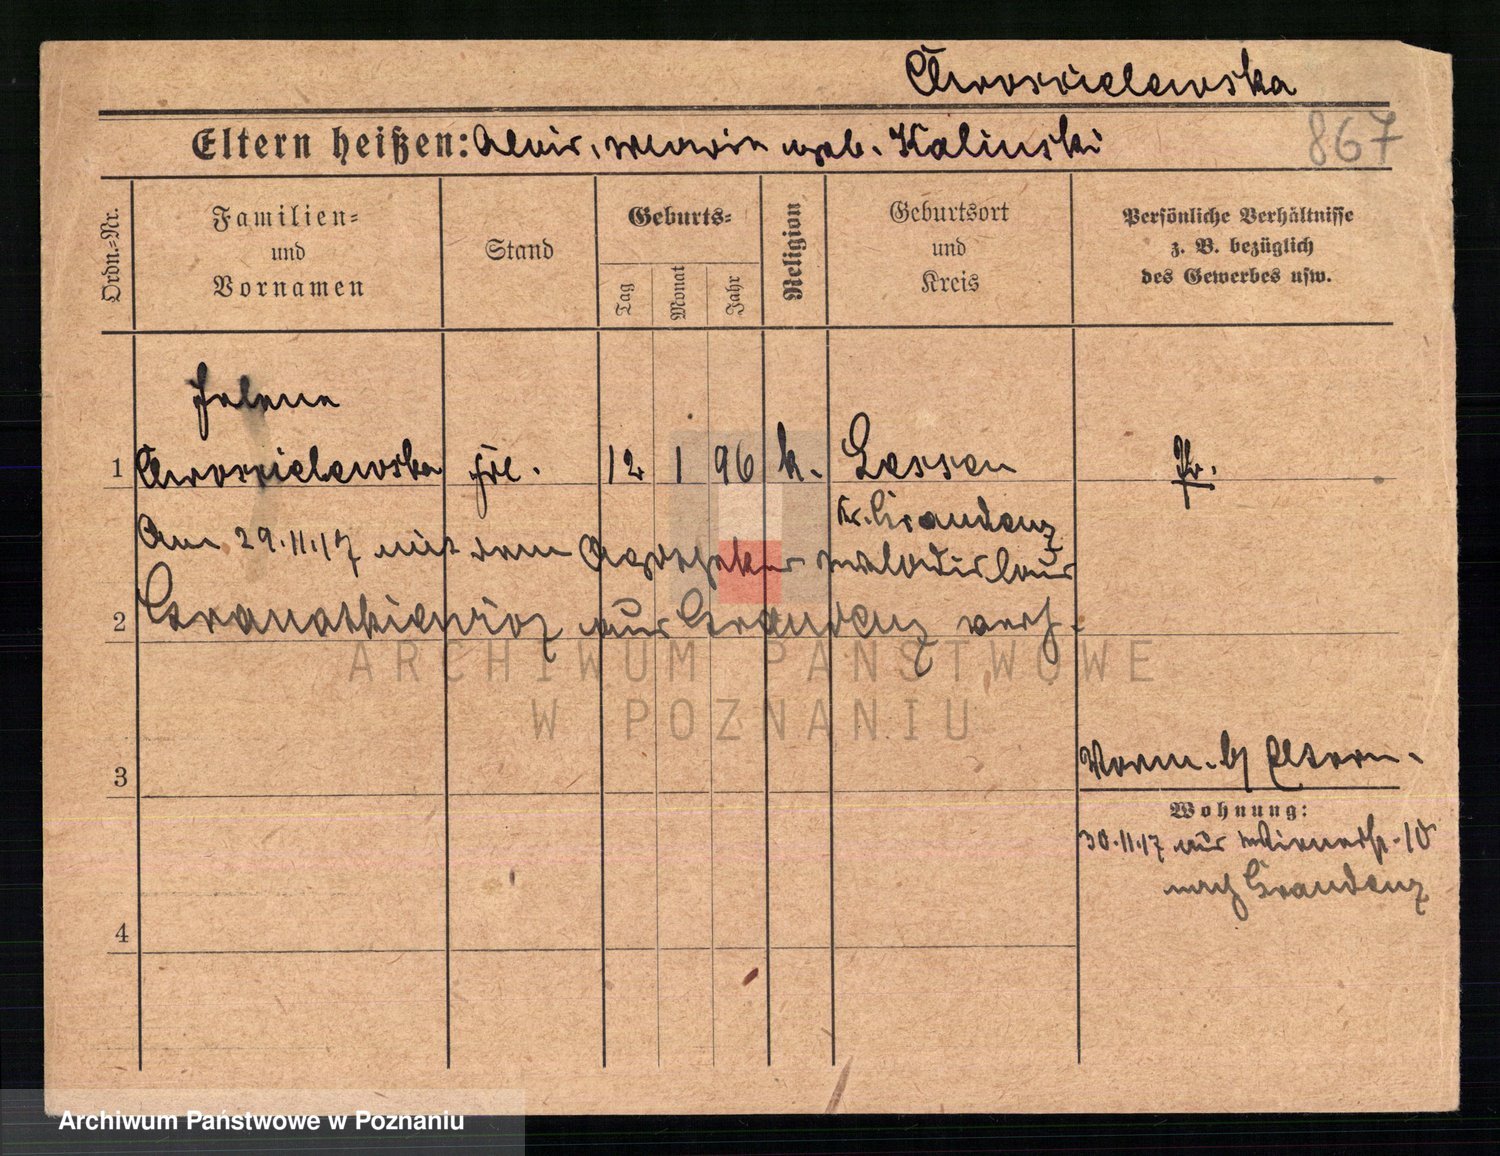 867
Eltern heißen: Alois, Maria geb. Kalinski
Ordn.-Nr.
Familien- und Vornamen
Stand
Geburts-
Tag
Monat
Jahr
Religion
Geburtsort und Kreis
Persönliche Verhältnisse z. B. bezüglich des Gewerbes usw.
Helene
1 frl. 12 1 96 k. Lessen Pr.
Kr. Graudenz
Am 29.11.17 mit dem Apotheker Wladislaus
2 aus Graudenz verh.
ARCHIWUM PAŃSTWOWE
W POZNANIU
3
Worm. b/ Eltern.
Wohnung:
30.11.17 aus 10
nach Graudenz
4
Archiwum Państwowe w Poznaniu